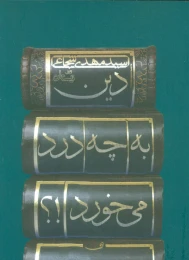 سید مهدی شجاعی
دین
به چه درد
می‌خورد !؟